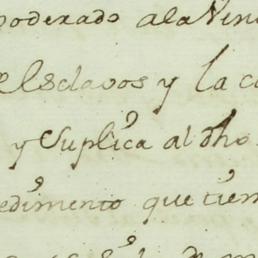 poderado ala Ven
Esclavos y la c
y Suplica al dho
edimento que tien